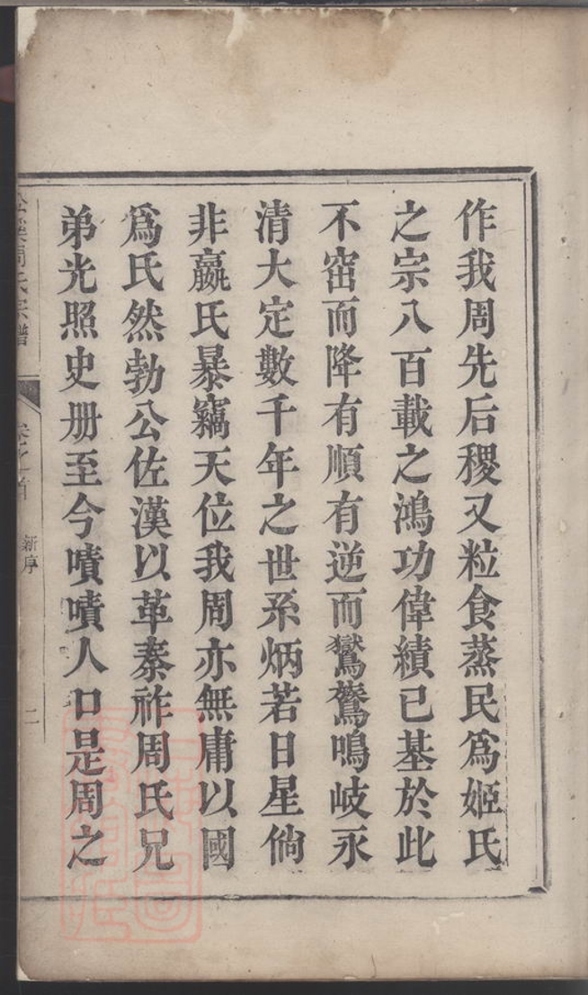 作我周先后稷又粒食蒸民爲姬氏
之宗八百載之鴻功偉績已基於此
不窋而降有順有逆而鸑鷟鳴岐永
清大定數千年之世系炳若日星倘
非嬴氏暴竊天位我周亦無庸以國
爲氏然勃公佐漢以革秦祚周氏兄
弟光照史册至今嘖嘖人口是周之
周氏宗譜
新序
二